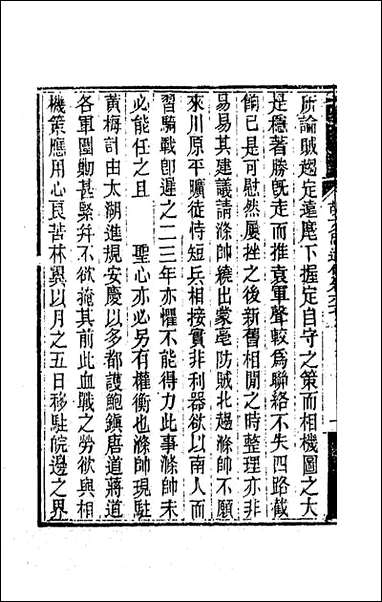 所論賊趨定遠麾下握定自守之策而相機圖之大
是穩著勝既走而推袁軍聲較為聯絡不失四路截
餉已是可慰然屢挫之後新舊相閒之時整理亦非
易易某建議請滌帥繞出蒙亳防賊北趨滌帥不願
來川原平曠徒恃短兵相接實非利器欲以南人而
習騎戰卽遲之二三年亦懼不能得力此事滌帥未
必能任之且　聖心亦必另有權衡也滌帥現駐
黃梅計由太湖進規安慶以多都護鮑鎮唐道蔣道
各軍圍勦甚緊幷不欲掩其前此血戰之勞欲與相
機策應用心良苦林翼以月之五日移駐皖邊之界